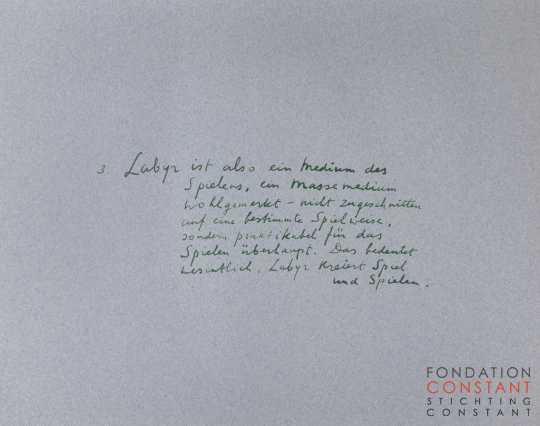 3. Labyr ist also ein Medium des
Spielens, ein Massemedium
wohlgemerkt - nicht zugeschnitten
auf eine bestimmte Spielweise,
sondern praktikabel für das
Spielen überhaupt. Das bedeutet
wesentlich, Labyr kreiert Spiel
und Spielen.
FONDATION
CONSTANT
STICHTING
CONSTANT